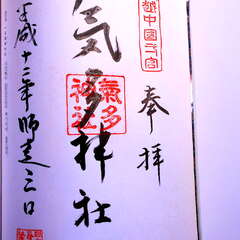 越中国一宮
奉拝
氣多神社
氣多神社
平成十三年師走三日